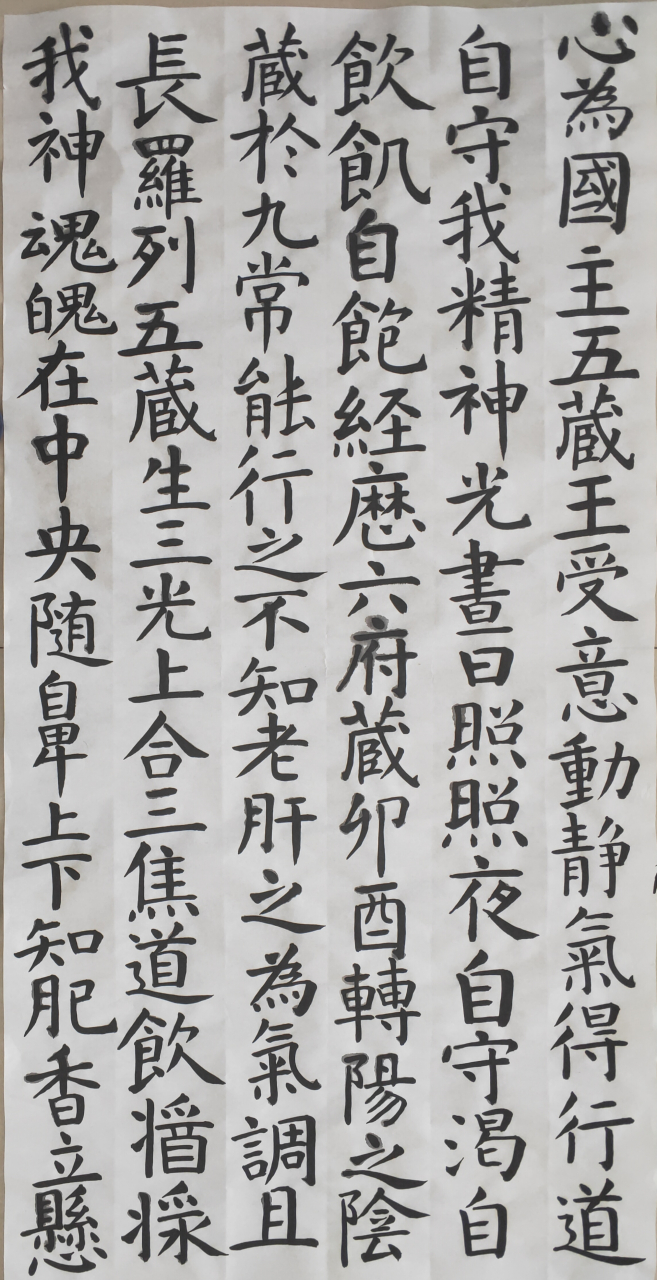 心為國主五蔵王受意動静氣得行道
自守我精神光晝日照照夜自守渇自
飲飢自飽経歴六府蔵卯酉轉陽之陰
蔵於九常能行之不知老肝之為氣調且
長羅列五蔵生三光上合三焦道飲
我神魂魄在中央随鼻上下知肥香立懸